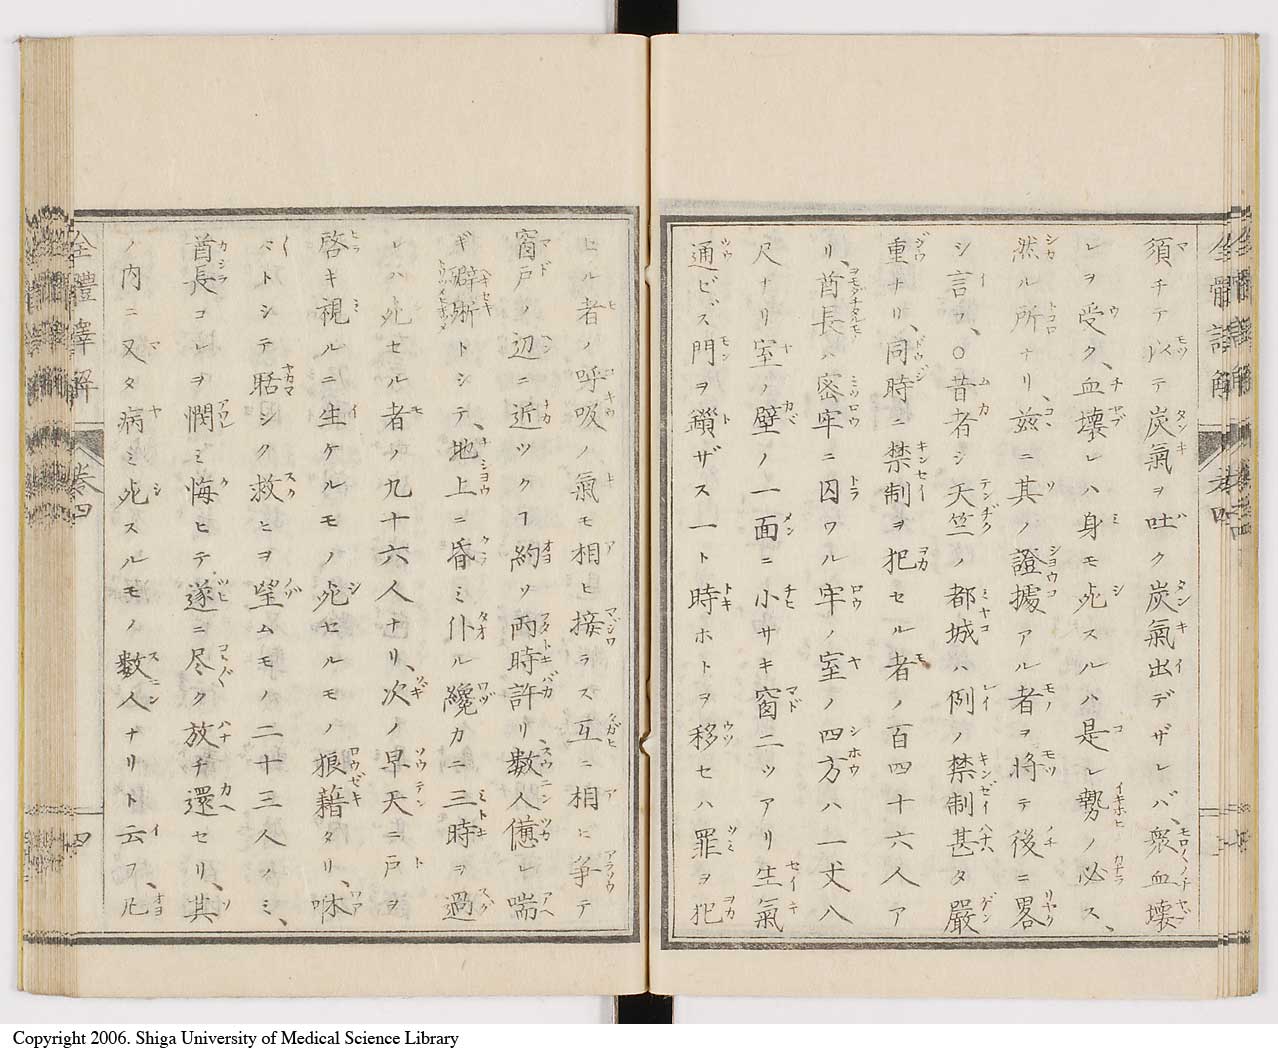 須チテ以テ炭氣ヲ吐ク炭氣出デザレバ、衆血壊
レヲ受ク、血壊レハ身モ死スルハ是レ勢ノ必ス、
然ル所ナリ、茲ニ其ノ證據アル者ヲ将テ後ニ畧
シ言フ、○昔者シ天竺ノ都城ハ例ノ禁制甚タ嚴
重ナリ、同時ニ禁制ヲ犯セル者ノ百四十六人ア
リ、酋長ハ密牢ニ囚ワル牢ノ室ノ四方ハ一丈八
尺ナリ室ノ壁ノ一面ニ小サキ窗二ツアリ生氣
通ビズ門ヲ鎖ザス一ト時ホトヲ移セハ罪ヲ犯
セル者ノ呼吸ノ氣モ相ヒ接ラス互ニ相ヒ争テ
窗戸ノ辺ニ近ツクヿ約ソ兩時許リ、数人憊レ喘
ギ躃踖トシテ、地上ニ昏ミ仆ル纔カニ三時ヲ過
レハ死セル者ノ九十六人ナリ、次ノ早天ニ戸ヲ
啓キ視ルニ生ケルモノ死セルモノ狼藉タリ、咻
〱トシテ聒シク救ヒヲ望ムモノ二十三人ノミ、
酋長コレヲ憫ミ悔ヒテ遂ニ尽ク放チ還セリ、其
ノ内ニ又タ病ミ死スルモノ数人ナリト云フ、凡
全體譯解
卷四
四